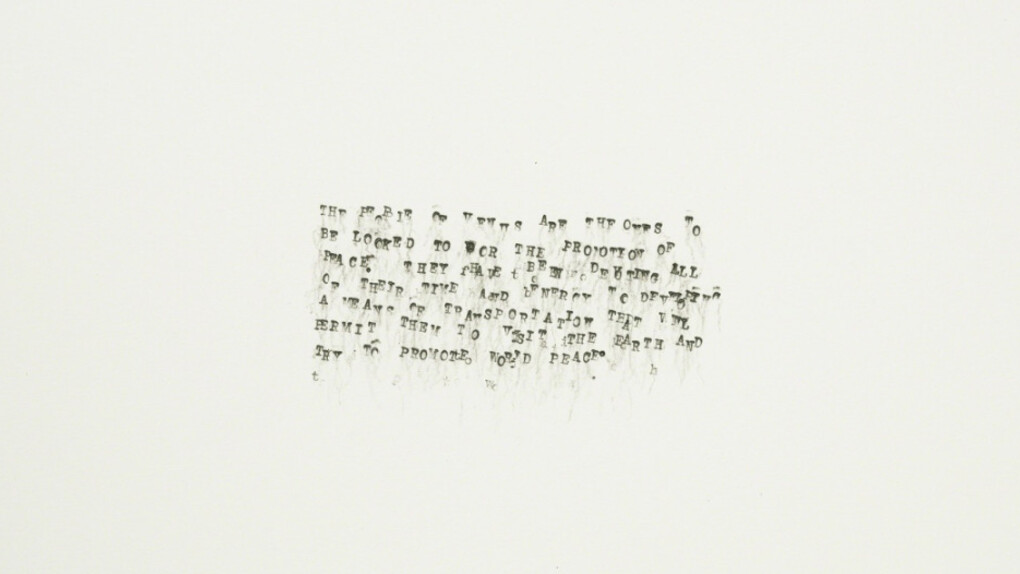 THE PEOPLE OF VENUS ARE THE ONES TO
BE LOOKED TO FOR THE PROMOTION OF
PEACE. THEY HAVE BEEN DEVOTING ALL
OF THEIR TIME AND ENERGY TO DEVELOPING
A MEANS OF TRANSPORTATION THAT WILL
PERMIT THEM TO VISIT THE EARTH AND
TRY TO PROMOTE WORLD PEACE.